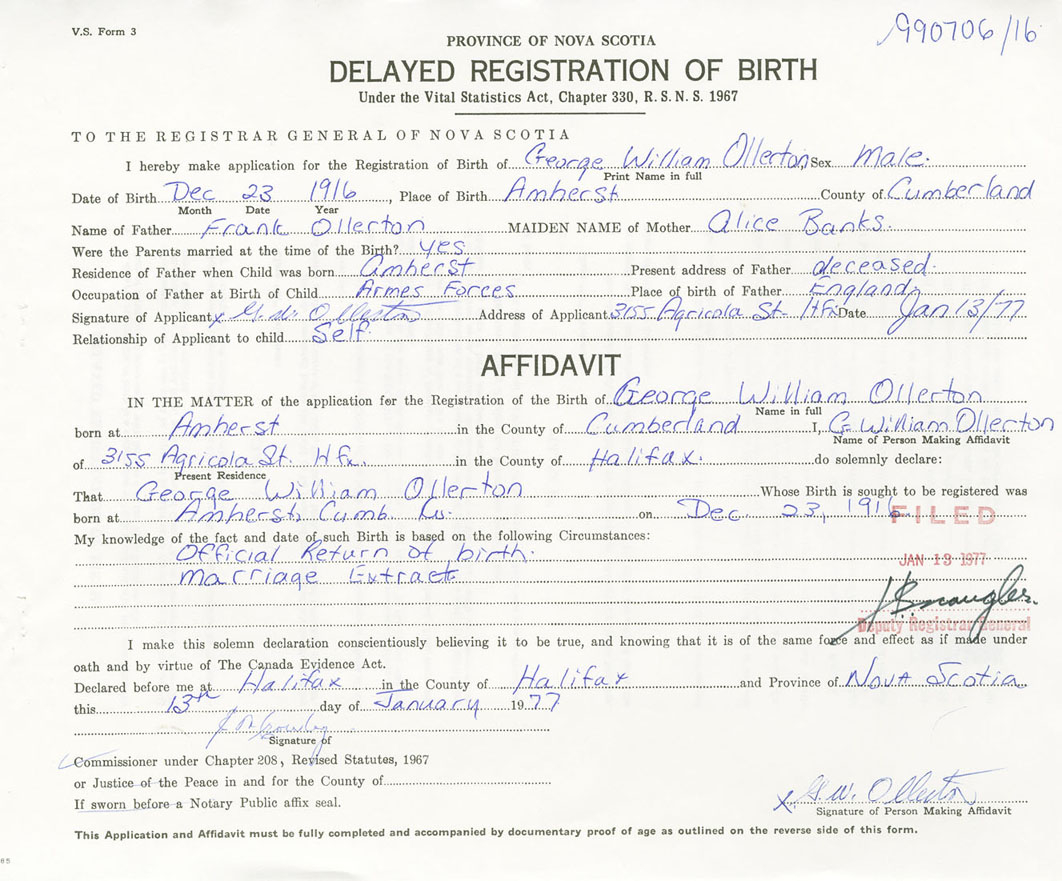 V.S. Form 3
990706/16
PROVINCE OF NOVA SCOTIA
DELAYED REGISTRATION OF BIRTH
Under the Vital Statistics Act, Chapter 330, R.S.N.S. 1967
TO THE REGISTRAR GENERAL OF NOVA SCOTIA
I hereby make application for the Registration of Birth of George William Ollerton Sex Male.
Print Name in full
Date of Birth Dec 23 1916, Place of Birth Amherst County of Cumberland
Month Date Year
Name of Father Frank Ollerton MAIDEN NAME of Mother Alice Banks.
Were the Parents married at the time of the Birth? yes
Residence of Father when Child was born Amherst Present address of Father deceased.
Occupation of Father at Birth of Child Armes Forces Place of birth of Father England.
Signature of Applicant x G. W. Ollerton Address of Applicant 3155 Agricola St. Hfx Date Jan 13/77
Relationship of Applicant to child Self.
AFFIDAVIT
IN THE MATTER of the application for the Registration of the Birth of George William Ollerton
Name in full
born at Amherst in the County of Cumberland I, G. William Ollerton
Name of Person Making Affidavit
of 3155 Agricola St. Hfx. in the County of Halifax. do solemnly declare:
Present Residence
That George William Ollerton Whose Birth is sought to be registered was
born at Amherst, Cumb. Co. on Dec. 23, 1916
FILED
My knowledge of the fact and date of such Birth is based on the following Circumstances:
Official Return of birth.
JAN 13 1977
Marriage Extract
Deputy Registrar General
I make this solemn declaration conscientiously believing it to be true, and knowing that it is of the same force and effect as if made under
oath and by virtue of The Canada Evidence Act.
Declared before me at Halifax in the County of Halifax and Province of Nova Scotia
this 13th day of January 1977
Signature of
Commissioner under Chapter 208, Revised Statutes, 1967
or Justice of the Peace in and for the County of
If sworn before a Notary Public affix seal.
x G. W. Ollerton
Signature of Person Making Affidavit
This Application and Affidavit must be fully completed and accompanied by documentary proof of age as outlined on the reverse side of this form.